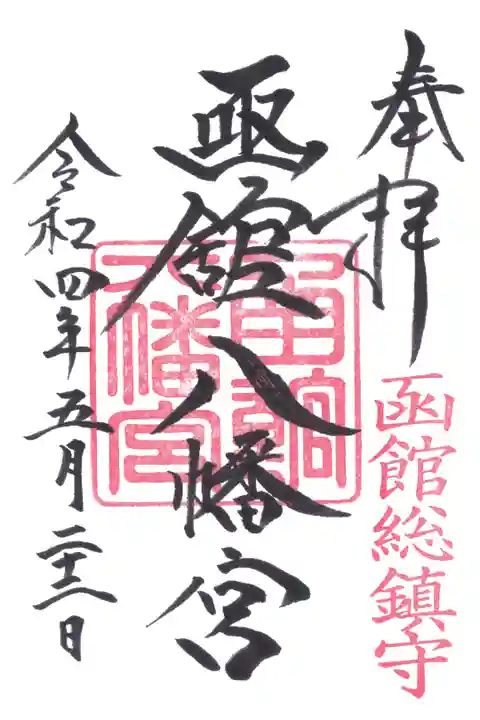 奉拝
函館総鎮守
凾舘八幡宮
函館八幡宮
令和四年五月二十二日